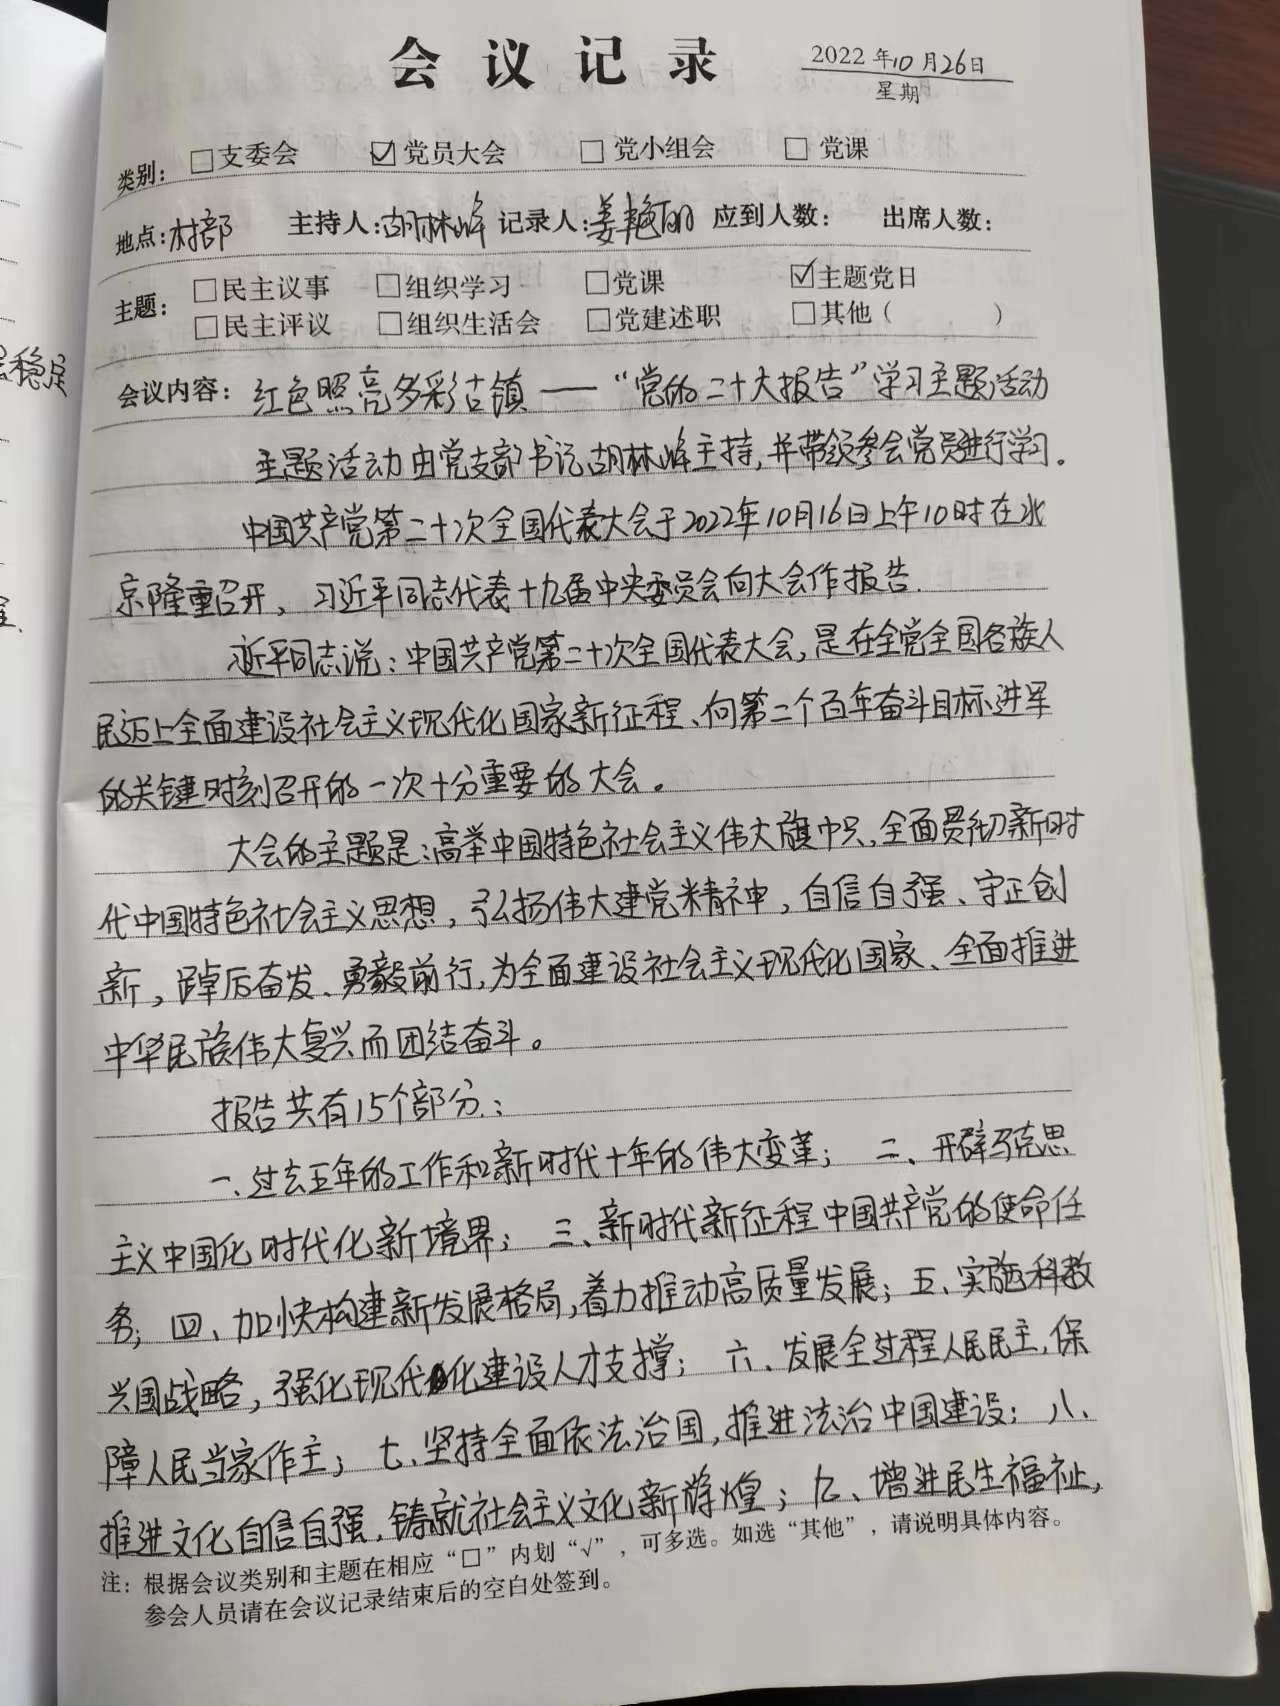 会议记录
2022年10月26日
星期
类别：□支委会 ☑党员大会 □党小组会 □党课
地点：村部 主持人：胡林峰 记录人：姜艳丽 应到人数： 出席人数：
主题：□民主议事 □组织学习 □党课 ☑主题党日
□民主评议 □组织生活会 □党建述职 □其他（ ）
会议内容：红色照亮多彩古镇——“党的二十大报告”学习主题活动
主题活动由党支部书记胡林峰主持，并带领参会党员进行学习。
中国共产党第二十次全国代表大会于2022年10月16日上午10时在北
京隆重召开，习近平同志代表十九届中央委员会向大会作报告.
近平同志说：中国共产党第二十次全国代表大会，是在全党全国各族人
民迈上全面建设社会主义现代化国家新征程、向第二个百年奋斗目标进军
的关键时刻召开的一次十分重要的大会。
大会的主题是：高举中国特色社会主义伟大旗中只，全面贯彻新时
代中国特色社会主义思想，弘扬伟大建党精神，自信自强、守正创
新，踔后奋发、勇毅前行，为全面建设社会主义现代化国家、全面推进
中华民族伟大复兴而团结奋斗。
报告共有15个部分：
一、过去五年的工作和新时代十年的伟大变革； 二、开辟马克思
主义中国化时代化新境界； 三、新时代新征程中国共产党的使命任
务；四、加快构建新发展格局，着力推动高质量发展；五、实施科教
兴国战略，强化现代化建设人才支撑； 六、发展全过程人民民主，保
障人民当家作主； 七、坚持全面依法治国，推进法治中国建设； 八、
推进文化自信自强，铸就社会主义文化新辉煌；九、增进民生福祉，
注：根据会议类别和主题在相应“□”内划“√”，可多选。如选“其他”，请说明具体内容。
参会人员请在会议记录结束后的空白处签到。
稳定